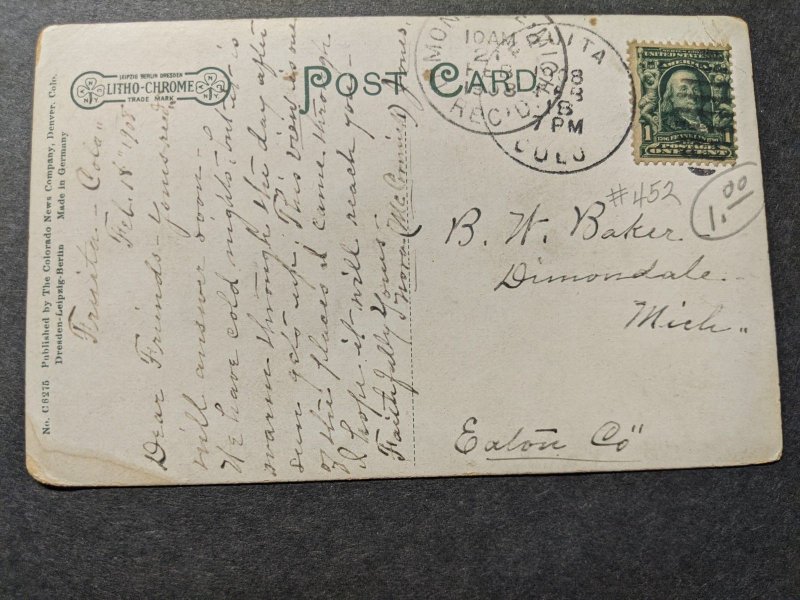 LEIPZIG BERLIN DRESDEN
LITHO-CHROME
TRADE MARK
POST CARD.
No. C6275 Published by The Colorado News Company, Denver, Colo.
Dresden-Leipzig-Berlin Made in Germany
Fruita - Colo -
Feb. 18" 1908
Dear Friends - Yours rec'd
will answer soon -
We have cold nights but it is
warm through the day after
sun gets up. This view is one
of the places I came through
I hope it will reach you -
Faithfully Yours
10 AM
21
REC'D
FRUITA
FEB
18
7 PM
COLO
08
SERIES 1902
UNITED STATES OF AMERICA
1 1
POSTAGE
ONE CENT
#452
1.00
B. W. Baker
Dimondale -
Mich "
Eaton Co "